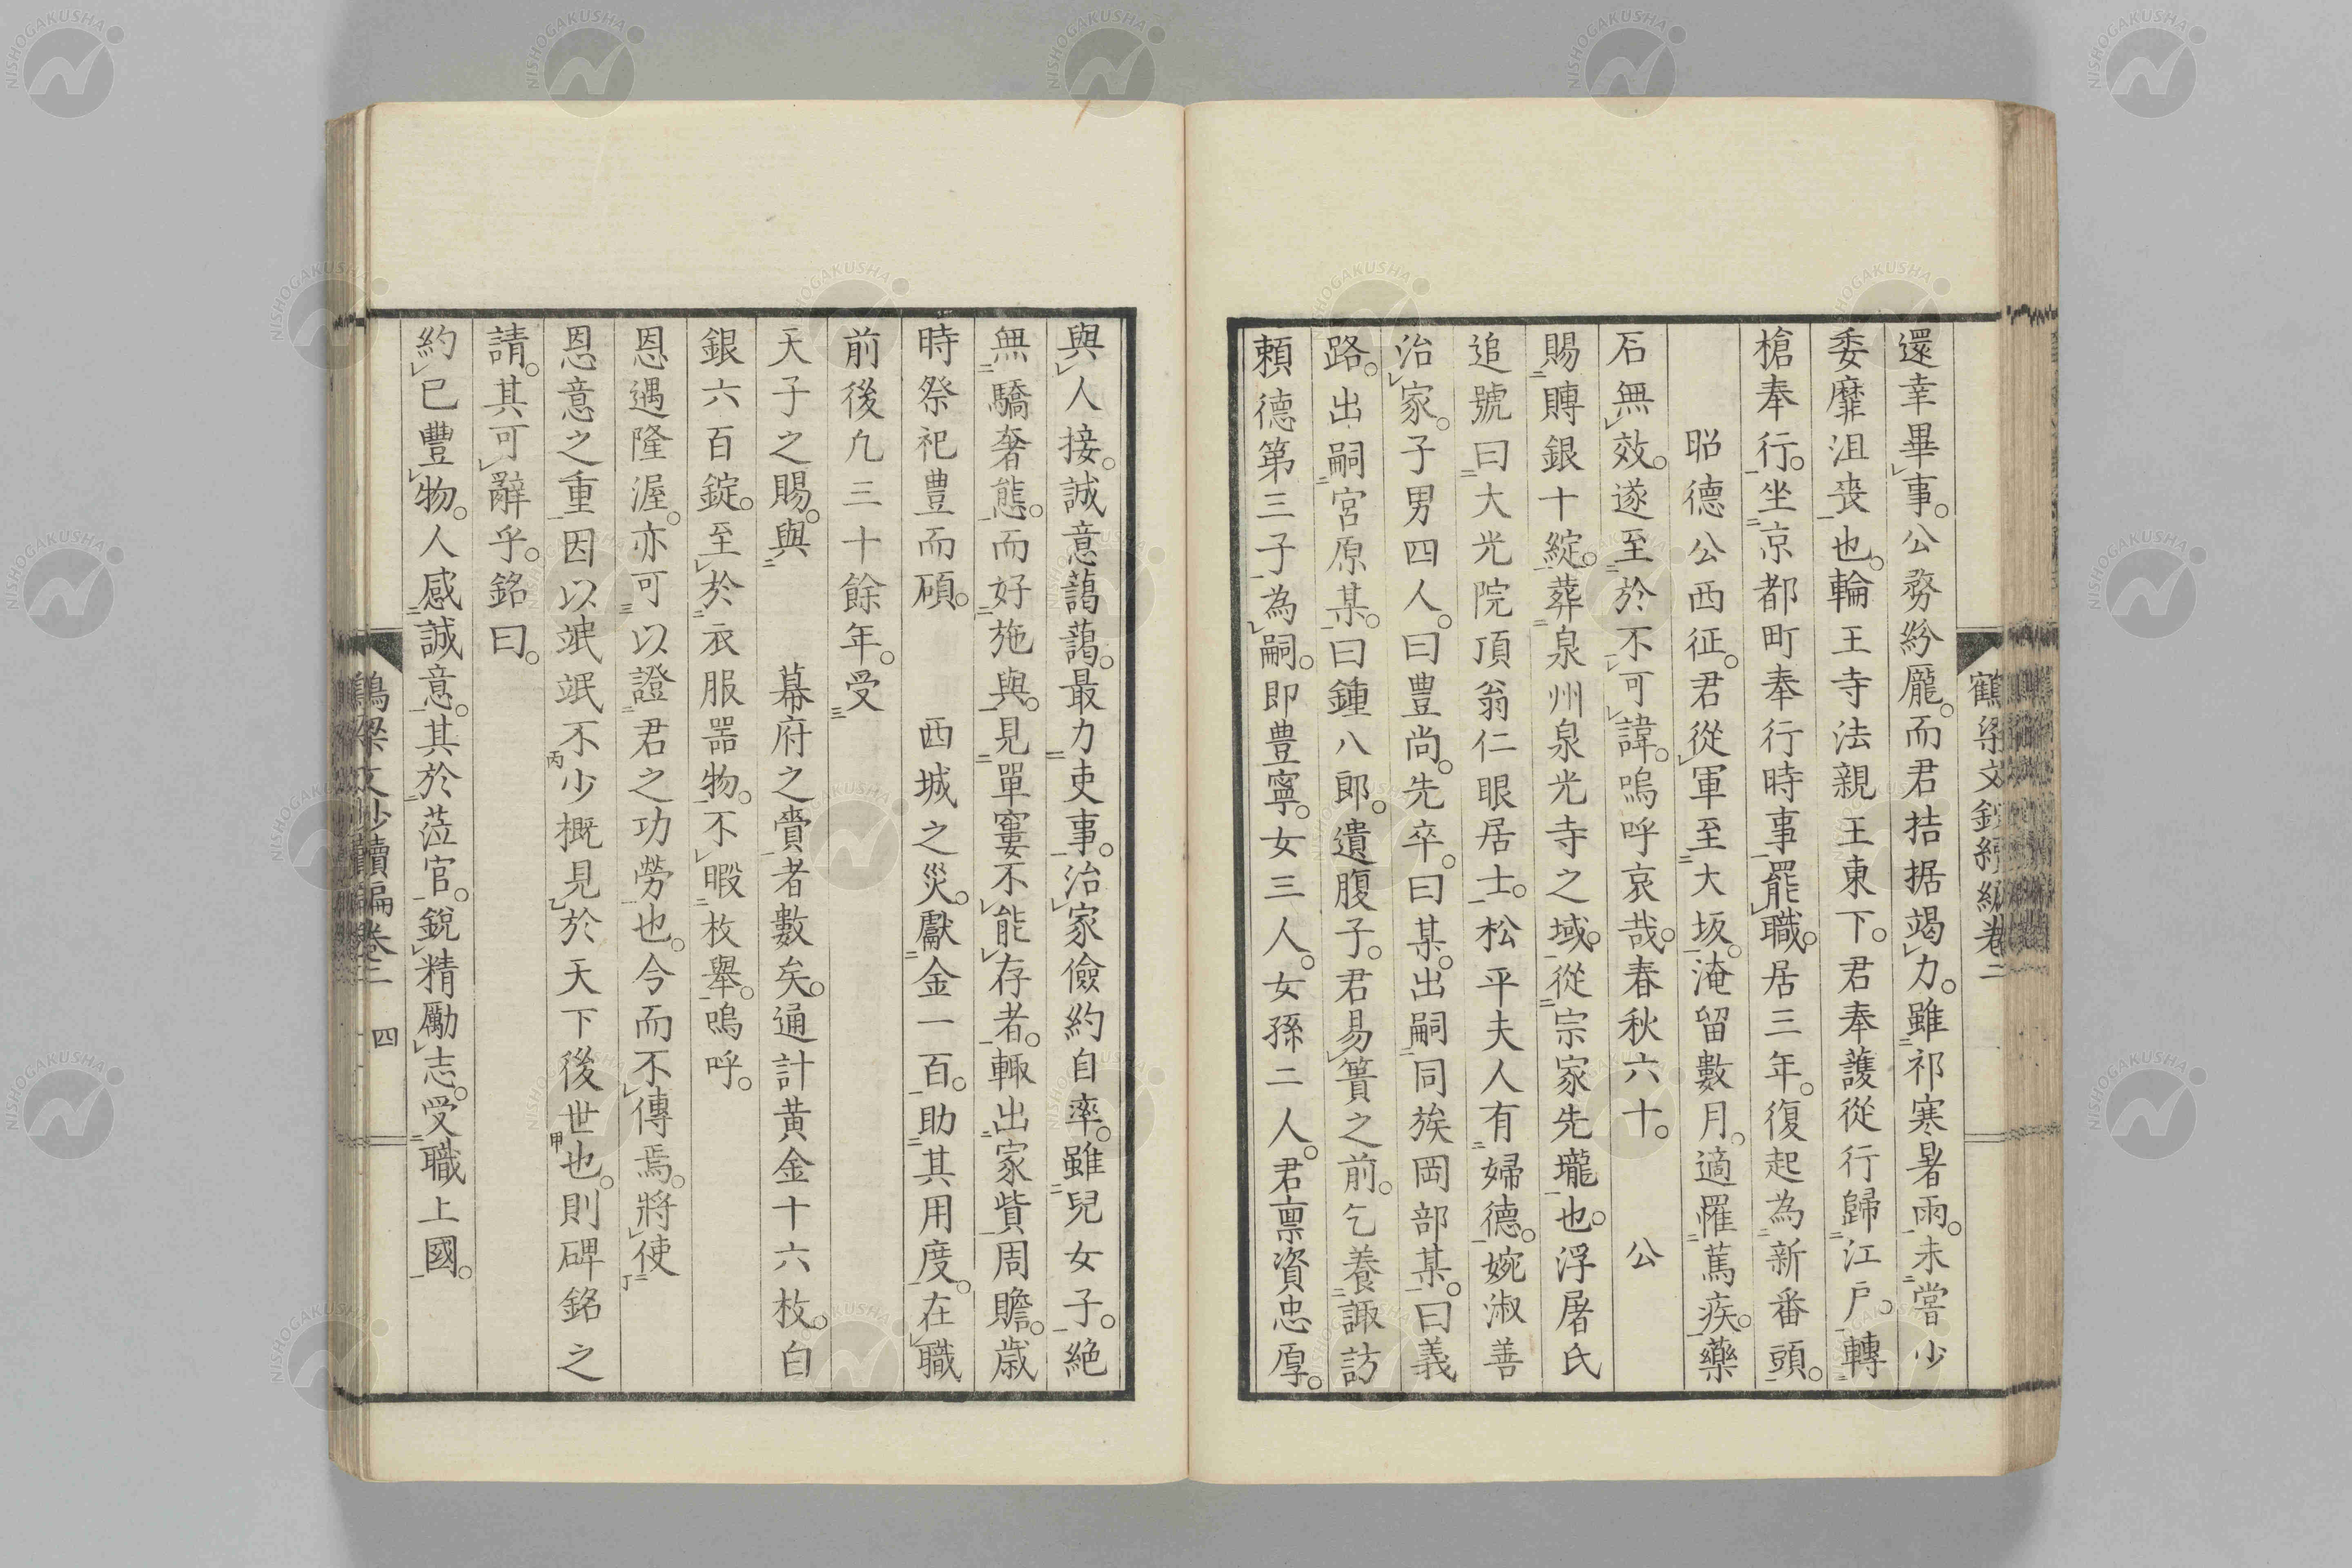 鶴梁文鈔續編卷二
還幸畢事。公務紛厖。而君拮据竭力。雖祁寒暑雨。未嘗少
委靡沮喪也。輪王寺法親王東下。君奉護從行歸江戸。轉
槍奉行。坐京都町奉行時事罷職。居三年。復起為新番頭。
昭德公西征。君從軍至大坂。淹留數月。適罹篤疾。藥
石無效。遂至於不可諱。嗚呼哀哉。春秋六十。公
賜賻銀十綻。葬泉州泉光寺之域。從宗家先壠也。浮屠氏
追號曰大光院頂翁仁眼居士。松平夫人有婦德。婉淑善
治家。子男四人。曰豊尚。先卒。曰某。出嗣同族岡部某。曰義
路。出嗣宮原某。曰鍾八郎。遺腹子。君易簀之前。乞養諏訪
頼德第三子為嗣。即豊寧。女三人。女孫二人。君稟資忠厚。
與人接。誠意藹藹。最力吏事。治家儉約自率。雖兒女子。絶
無驕奢態。而好施與。見單窶不能存者。輙出家貲周贍。歳
時祭祀豊而碩。西城之災。獻金一百。助其用度。在職
前後凡三十餘年。受
天子之賜。與幕府之賚者數矣。通計黄金十六枚。白
銀六百錠。至於衣服器物。不暇枚舉。嗚呼。
恩遇隆渥。亦可以證君之功勞也。今而不傳焉。將使
恩意之重因以泯泯不少概見於天下後世也。則碑銘之
請。其可辭乎。銘曰。
約已豐物。人感誠意。其於蒞官。銳精勵志。受職上國。
鶴梁文鈔續編卷二 四
NISHOGAKUSHA